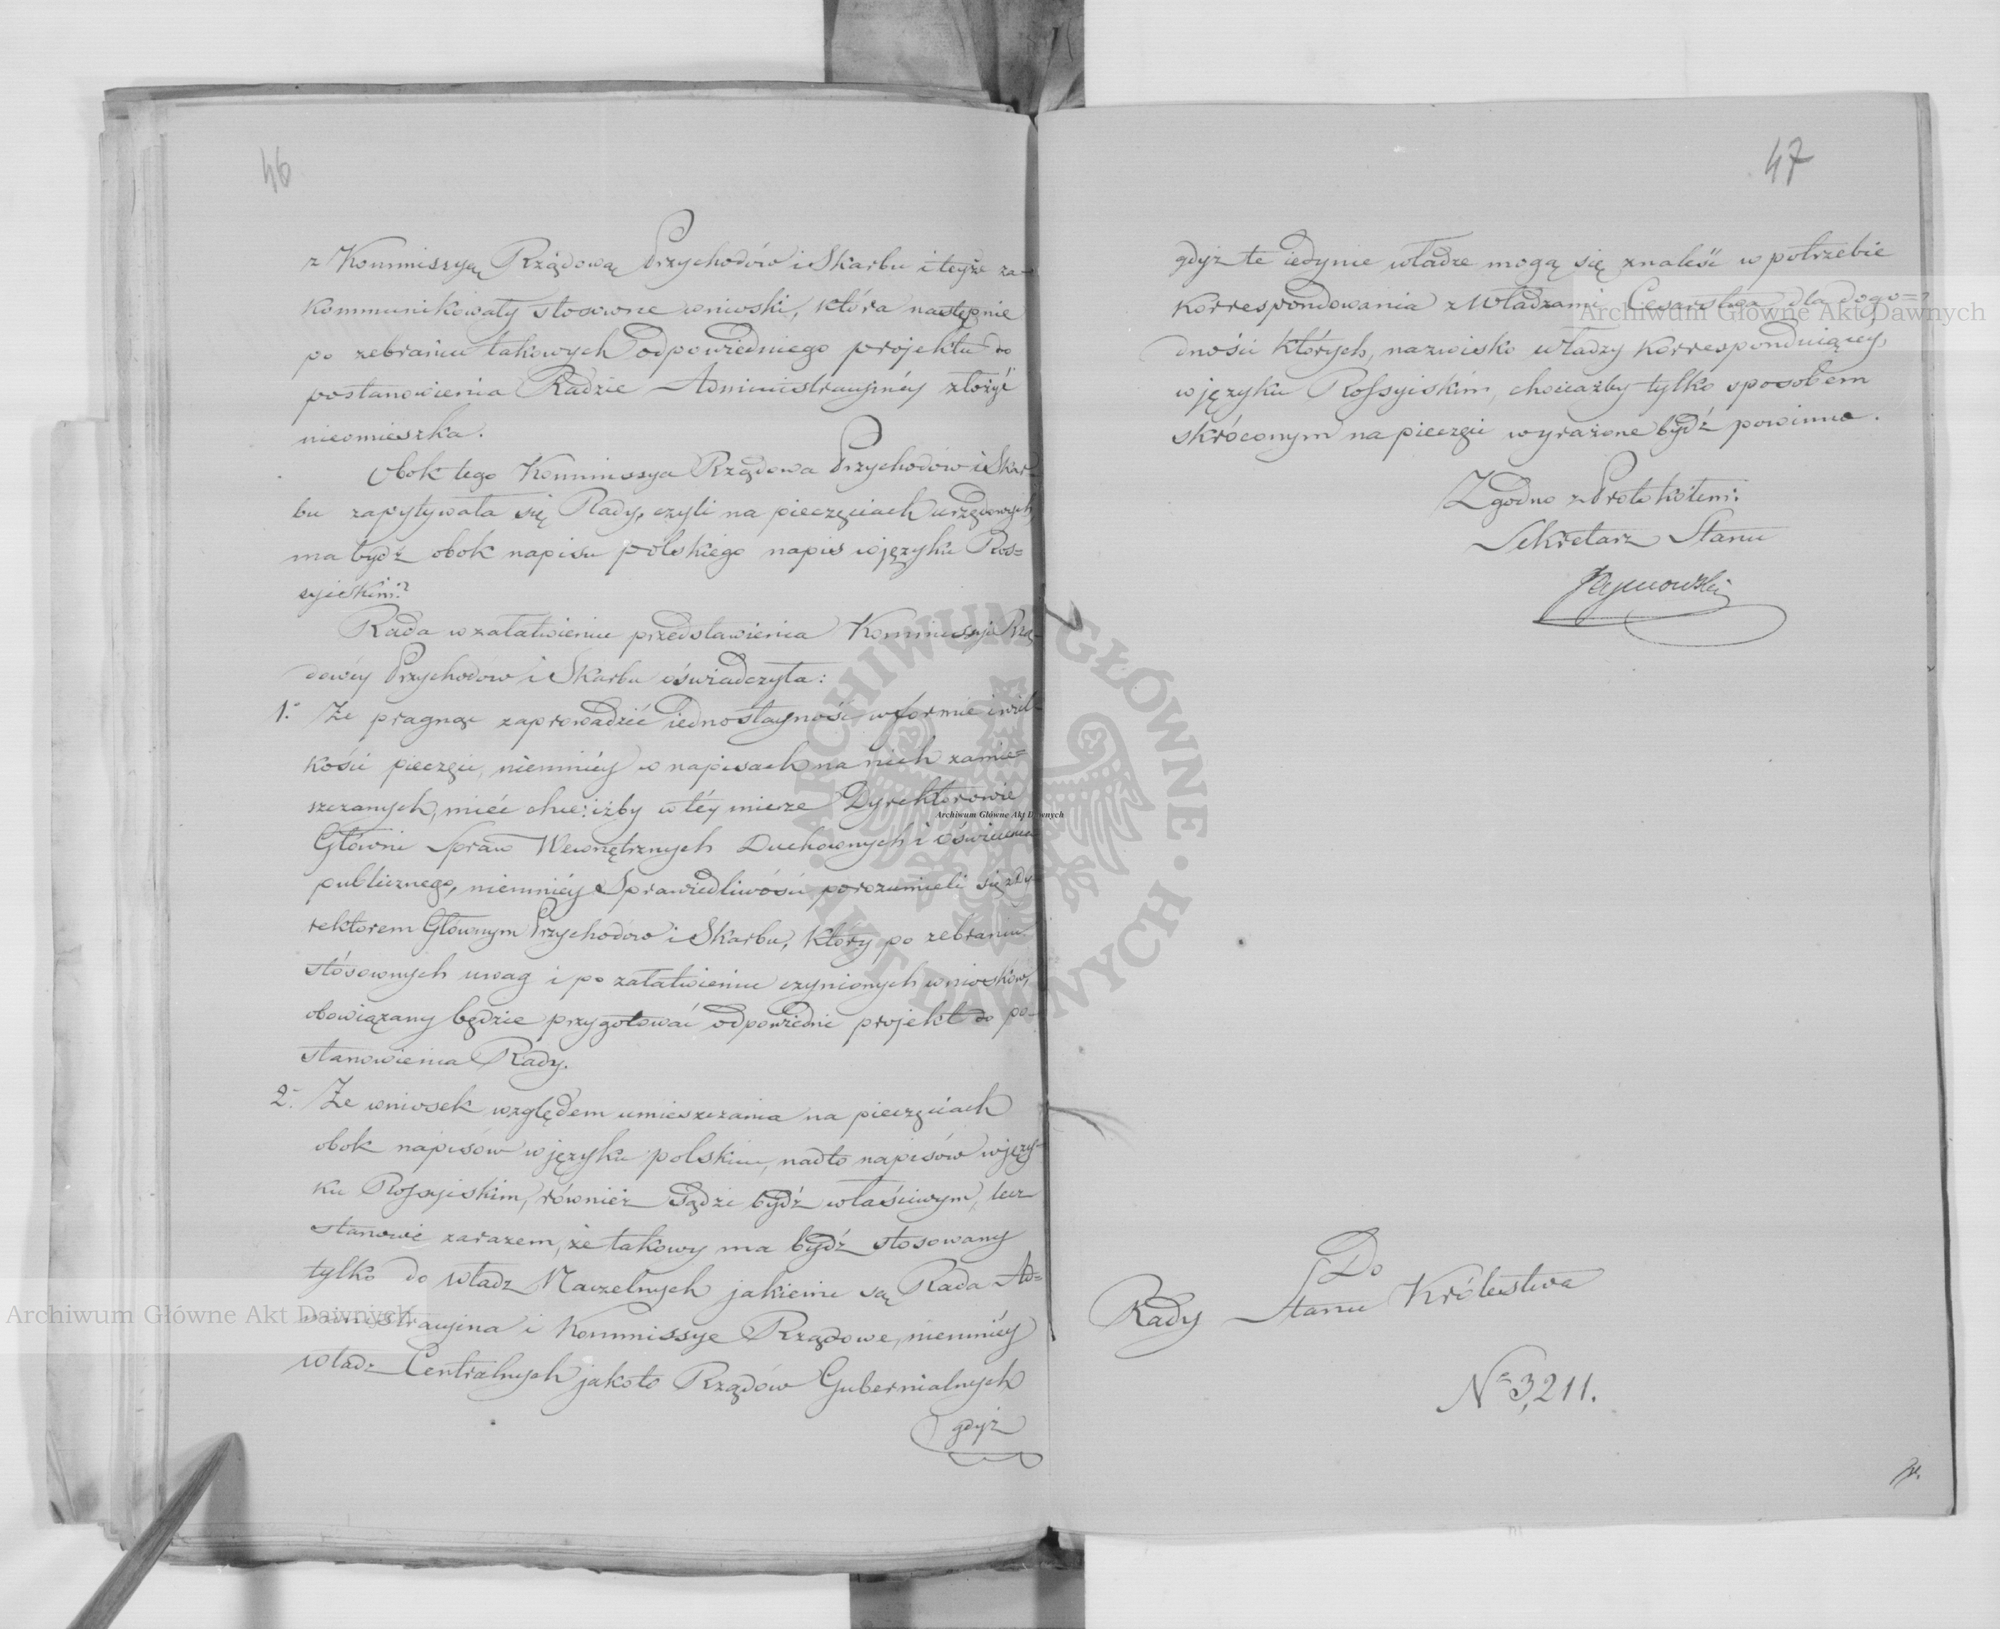 46
z Kommissyą Rządową Przychodów i Skarbu i teyże za-
kommunikowały stosowne wnioski, która następnie
po zebraniu takowych odpowiedniego projektu do
postanowienia Radzie Administracyjnéy złożyć
nieomieszka.
Obok tego Kommissya Rządowa Przychodów i Skar-
bu zapytywała się Rady, czyli na pieczęciach urzędowych
ma bydź obok napisu polskiego napis w języku Ros=
syiskim?
Rada w załatwieniu przedstawienia Kommissyi Rzą-
dowéy Przychodów i Skarbu oświadczyła:
1. Że pragnąc zaprowadzić iednostayność w formie i wiel-
kości pieczęci, niemniéy w napisach na nich zamie=
szczanych, mieć chce: iżby w téy mierze Dyrektorowie
Główni Spraw Wewnętrznych Duchownych i Oświecenia
publicznego, niemniéy Sprawiedliwości porozumieli się z Dy-
rektorem Głównym Przychodów i Skarbu, który po zebraniu
stósownych uwag i po załatwieniu czynionych wniosków,
obowiązany będzie przygotować odpowiedni projekt do po-
stanowienia Rady.
2. Że wniosek względem umieszczania na pieczęciach
obok napisów w języku polskim, nadto napisów w języ-
ku Rossyiskim, również sądzi bydź właściwym, lecz
stanowi zarazem, że takowy ma bydź stosowany
tylko do Władz Naczelnych jakiemi są Rada Ad=
ministracyjna i Kommissye Rządowe, niemniéy
Władz Centralnych jakoto Rządów Gubernialnych
gdyż
47
gdyż te iedynie władze mogą się znaleść w potrzebie
korrespondowania z Władzami Cesarstwa, dla dogo=
dności których, nazwisko władzy korresponduiącéy,
w języku Rossyiskim, chociażby tylko sposobem
skróconym na pieczęci wyrażone bydź powinno.
Zgodno z Protokółem:
Sekretarz Stanu
Do
Rady Stanu Królestwa
No 3,211.
Archiwum Główne Akt Dawnych
Archiwum Główne Akt Dawnych
Archiwum Główne Akt Dawnych
ARCHIWUM GŁÓWNE · AKT DAWNYCH ·